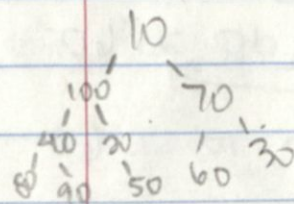 10
100 70
40 20 30
80 90 50 60